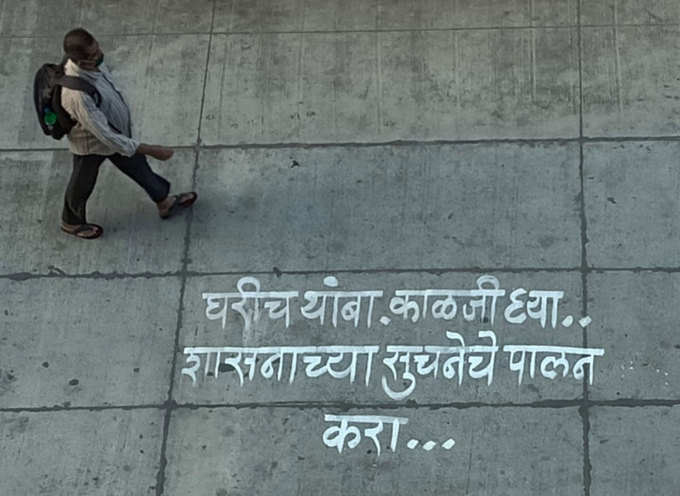 घरीच थांबा.काळजी घ्या..
शासनाच्या सुचनेचे पालन
करा...